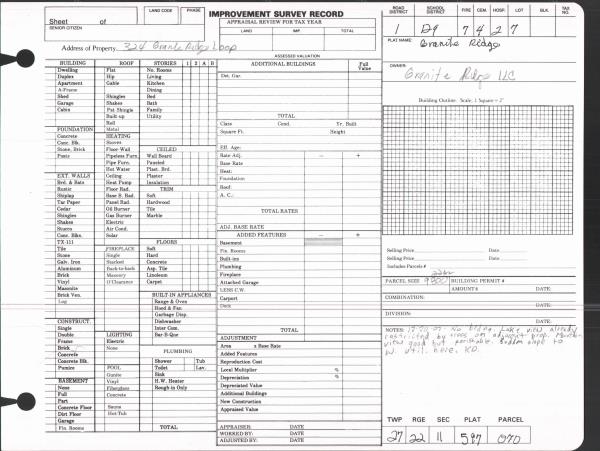 Sheet of
SENIOR CITIZEN
LAND CODE
PHASE
IMPROVEMENT SURVEY RECORD
APPRAISAL REVIEW FOR TAX YEAR
LAND IMP. TOTAL
ASSESSED VALUATION
Address of Property 324 Granite Ridge Loop
ROAD DISTRICT SCHOOL DISTRICT FIRE CEM. HOSP. LOT BLK. TAX NO.
1 D9 7 4 2 7
PLAT NAME:
Granite Ridge
OWNER:
Granite Ridge LLC
Building Outline: Scale, 1 Square = 2'
BUILDING ROOF STORIES 1 2 A B
Dwelling Flat No. Rooms
Duplex Hip Living
Apartment Gable Kitchen
A-Frame Dining
Shed Shingles Bed
Garage Shakes Bath
Cabin Pat. Shingle Family
Built up Utility
Roll
FOUNDATION Metal
Concrete HEATING
Conc. Blk. Stoves CEILED
Stone, Brick Floor Wall Wall Board
Posts Pipeless Furn. Paneled
Pipe Furn. Plast. Brd.
Hot Water Plaster
EXT. WALLS Ceiling Insulation
Brd. & Bats Heat Pump TRIM
Rustic Floor Rad. Soft
Shiplap Base B. Rad. Hardwood
Tar Paper Panel Rad. Tile
Cedar Oil Burner Marble
Shingles Gas Burner
Shakes Electric
Stucco Air Cond.
Conc. Blks. Solar
TX-111 FLOORS
Tile FIREPLACE Soft
Stone Single Hard
Galv. Iron Stacked Concrete
Aluminum Back-to-back Asp. Tile
Brick Masonry Linoleum
Vinyl O'Clearance Carpet
Masonite
Brick Ven. BUILT-IN APPLIANCES
Log Range & Oven
Hood & Fan
Garbage Disp.
CONSTRUCT. Dishwasher
Single Inter Com.
Double LIGHTING Bar-B-Que
Frame Electric
Brick None
Concrete PLUMBING
Concrete Blk. Shower Tub
Pumice POOL Toilet Lav.
Gunite Sink
BASEMENT Vinyl H.W. Heater
None Fiberglass Rough-in Only
Full Concrete
Part
Concrete Floor Sauna
Dirt Floor Hot-Tub
Garage
Fin. Rooms TOTAL
ADDITIONAL BUILDINGS Full Value
Det. Gar.
TOTAL
Class Cond. Yr. Built
Square Ft. Height
Eff. Age:
Rate Adj. − +
Base Rate
Heat:
Foundation
Roof:
A. C.:
TOTAL RATES
ADJ. BASE RATE
ADDED FEATURES − +
Basement
Fin. Rooms
Built-ins
Plumbing
Fireplace
Attached Garage
LESS C.W.
Carport
Deck
TOTAL
ADJUSTMENT
Area x Base Rate
Added Features
Reproduction Cost
Local Multiplier %
Depreciation %
Depreciated Value
Additional Buildings
New Construction
Appraised Value
APPRAISER: DATE
WORKED BY: DATE
ADJUSTED BY: DATE
Selling Price Date
Selling Price Date
Includes Parcels #
PARCEL SIZE BUILDING PERMIT #
AMOUNT $ DATE:
COMBINATION: DATE:
DIVISION: DATE:
NOTES: No bldg. Lake view already
restricted by trees on adjacent prop.
view good but perishable. Sudden slope to
W. Util. here. KD.
TWP RGE SEC PLAT PARCEL
27 22 11 597 070